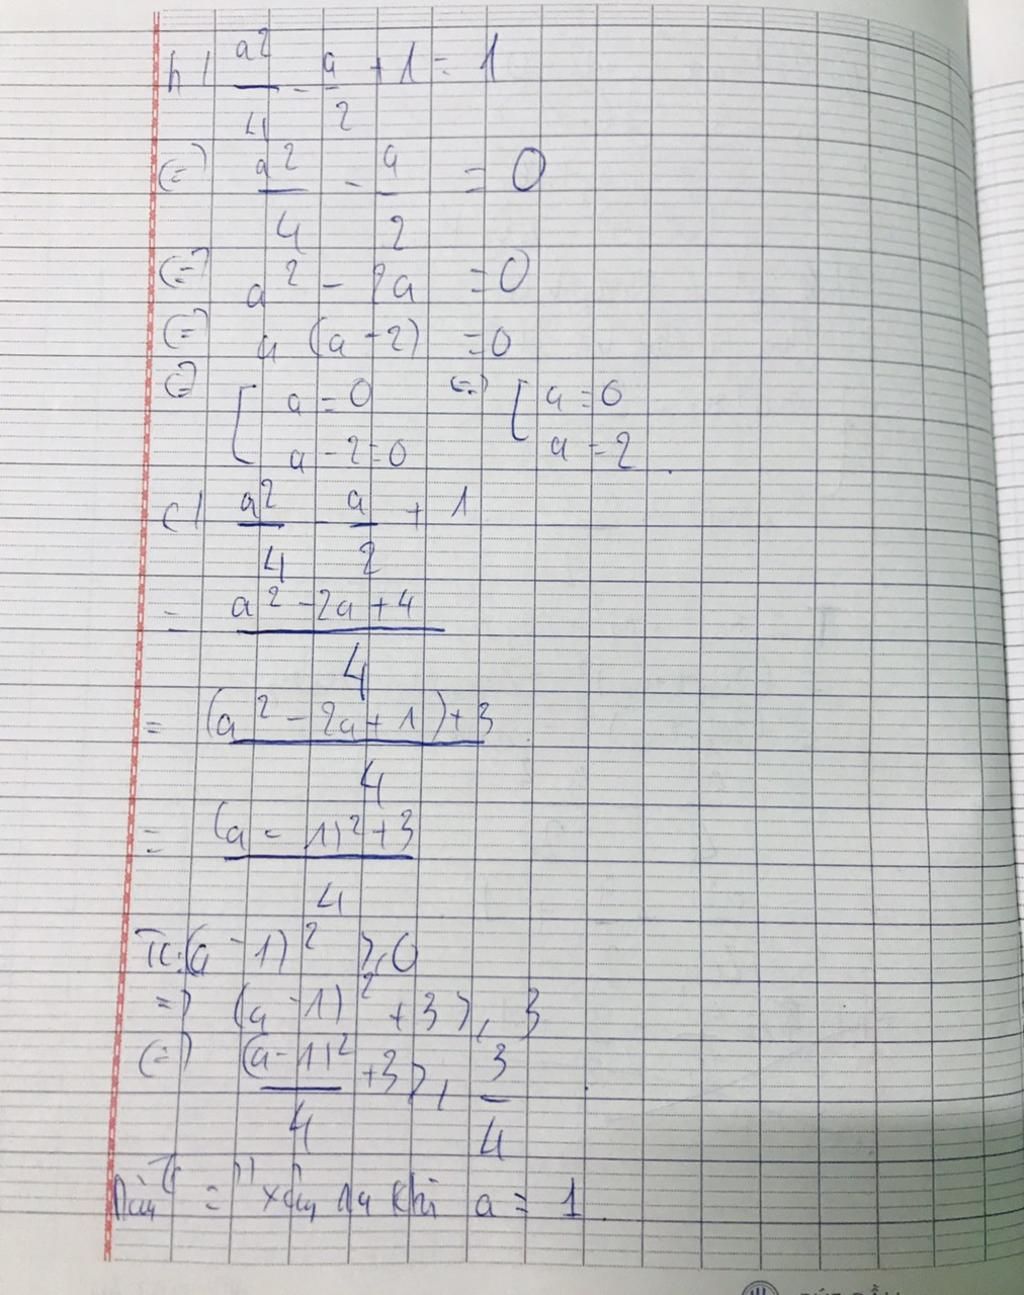 b) a²/4 - a/2 + 1 = 1
(=) a²/4 - a/2 = 0
(=) a² - 2a = 0
(=) a (a - 2) = 0
(=) [ a = 0 (=) [ a = 0
a - 2 = 0 a = 2
c) a²/4 - a/2 + 1
= (a² - 2a + 4)/4
= ((a² - 2a + 1) + 3)/4
= ((a - 1)² + 3)/4
Tc: (a - 1)² ≥ 0
=> (a - 1)² + 3 ≥ 3
(=) (a - 1)²/4 + 3 ≥ 3/4
Dấu "=" xảy ra khi a = 1